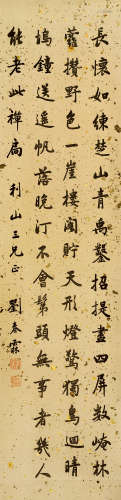 長懷如練楚山青禹鑿招提畫四屏數崦林
蘿攢野色一崖樓閣貯天形燈驚獨鳥迴晴
塢鐘送遙帆落晚汀不會髯頭無事者幾人
能老此禪扃 利山三兄正 劉春霖